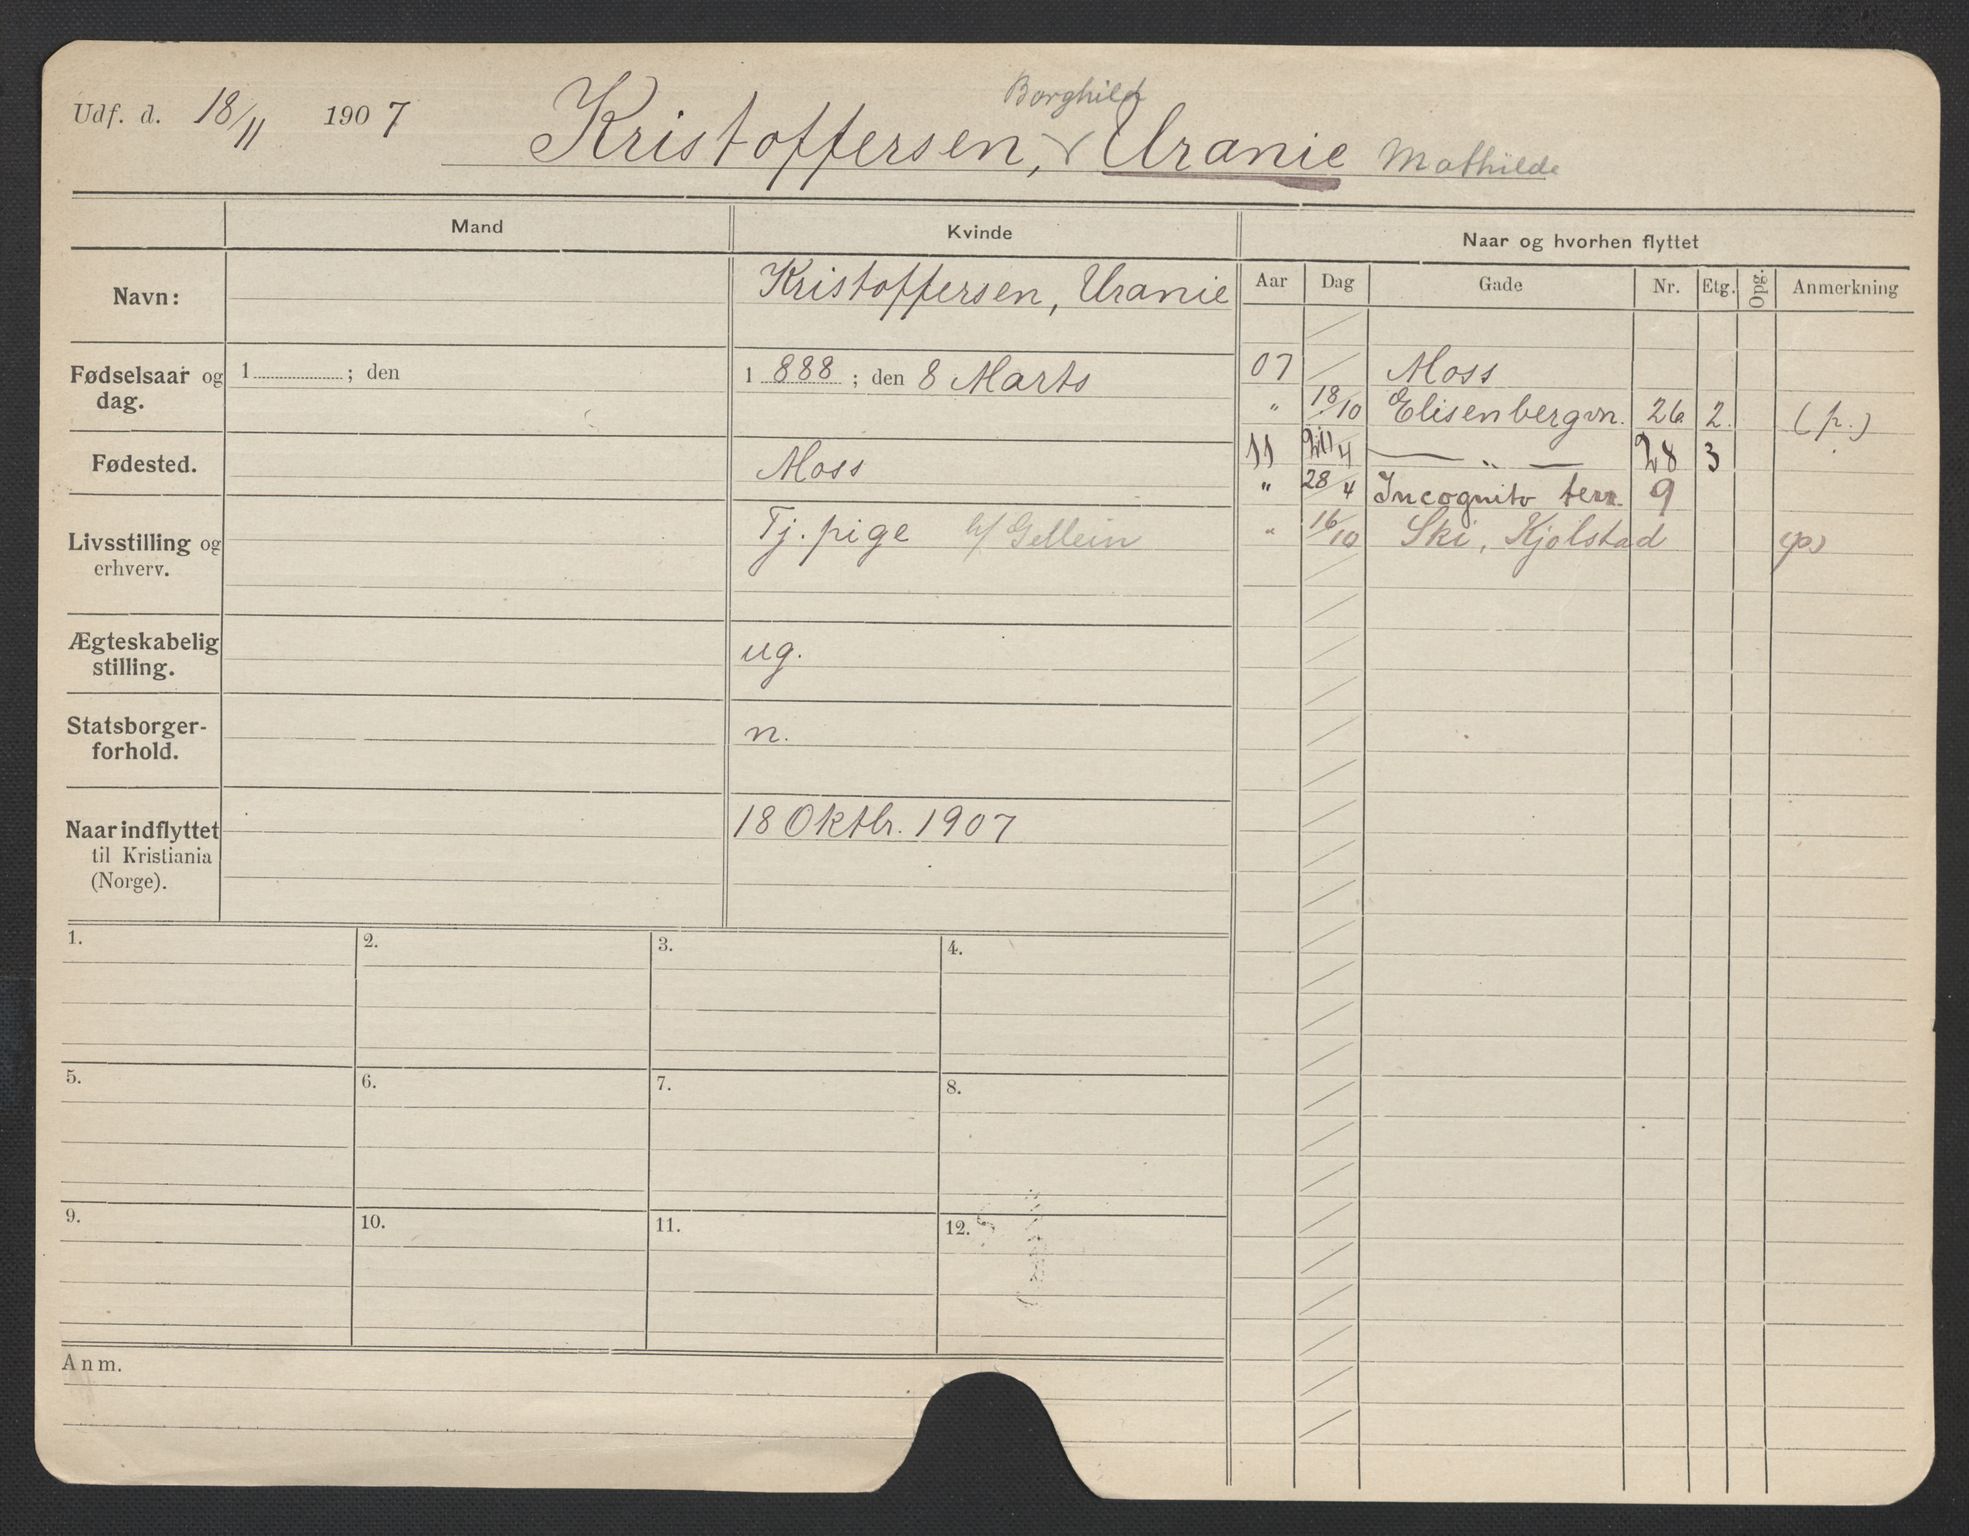 Udf. d. 18/11 1907 Kristoffersen, Borghild Uranie Mathilde
Mand Kvinde Naar og hvorhen flyttet
Aar Dag Gade Nr. Etg. Opg. Anmerkning
Navn: Kristoffersen, Uranie
Fødselsaar og dag. 1 ; den 1 888 ; den 8 Marts
Fødested. Moss
Livsstilling og erhverv. Tj. pige h/ Gellein
Ægteskabelig stilling. ug.
Statsborger-forhold. n.
Naar indflyttet til Kristiania (Norge). 18 Oktbr. 1907
07 Moss
" 18/10 Elisenbergvn. 26 2. (p.)
11 /4 — " — 28 3
" 28/4 Incognito terr. 9
" 16/10 Ski, Kjølstad (p)
1. 2. 3. 4.
5. 6. 7. 8.
9. 10. 11. 12.
Anm.